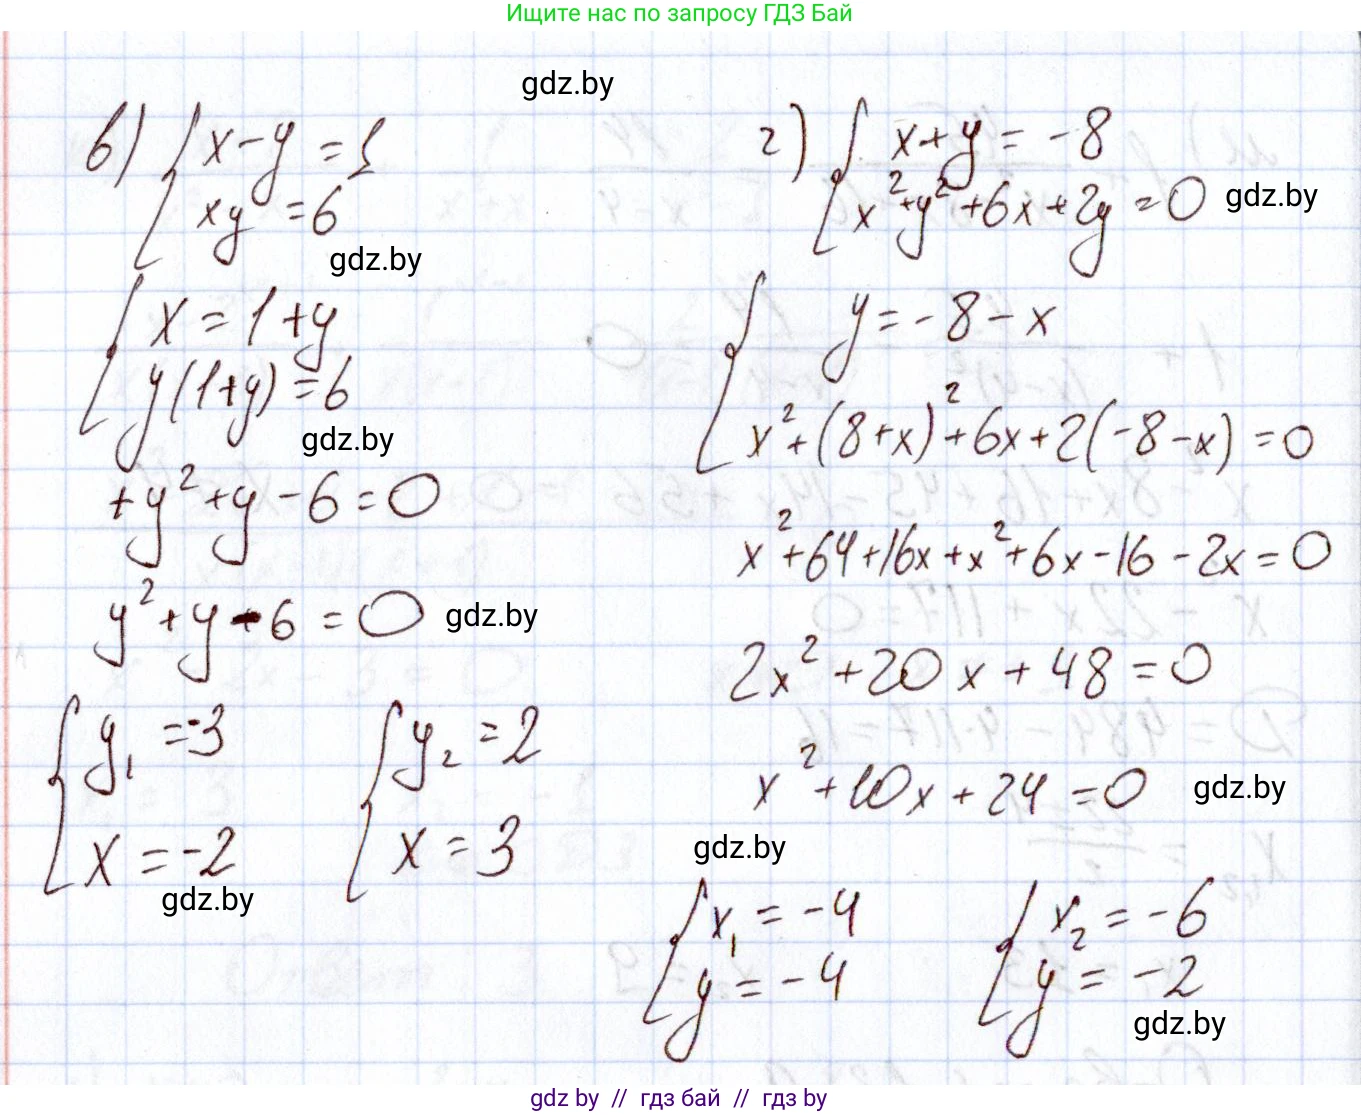 Ищите нас по запросу ГДЗ Бай
gdz.by
в) { x - y = 1
xy = 6
gdz.by
{ x = 1 + y
y(1+y) = 6
gdz.by
+y² + y - 6 = 0
y² + y - 6 = 0
gdz.by
{ y₁ = -3
x = -2
{ y₂ = 2
x = 3
gdz.by
г) { x + y = -8
x² + y² + 6x + 2y = 0
gdz.by
{ y = -8 - x
x² + (8+x)² + 6x + 2(-8-x) = 0
x² + 64 + 16x + x² + 6x - 16 - 2x = 0
2x² + 20x + 48 = 0
x² + 10x + 24 = 0
gdz.by
gdz.by
{ x₁ = -4
y = -4
{ x₂ = -6
y = -2
gdz.by
gdz by // гдз бай // гдз by